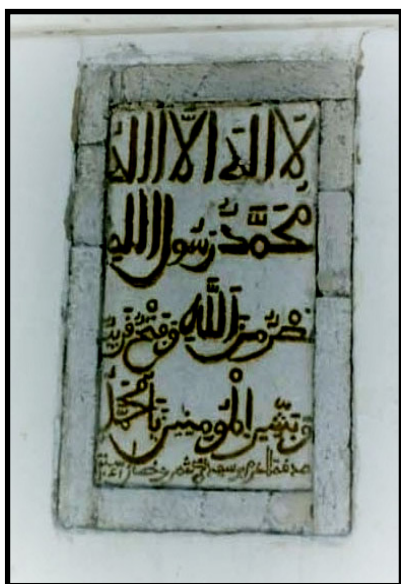 لَا اله الَّا الله
مُحَمَّدٌ رَسُول الله
نصرٌ مِنَ اللَّهِ وَفَتْحٌ قَرِيبٌ
وَبَشِّرِ الْمُومِنِينَ يَا مُحَمَّدُ